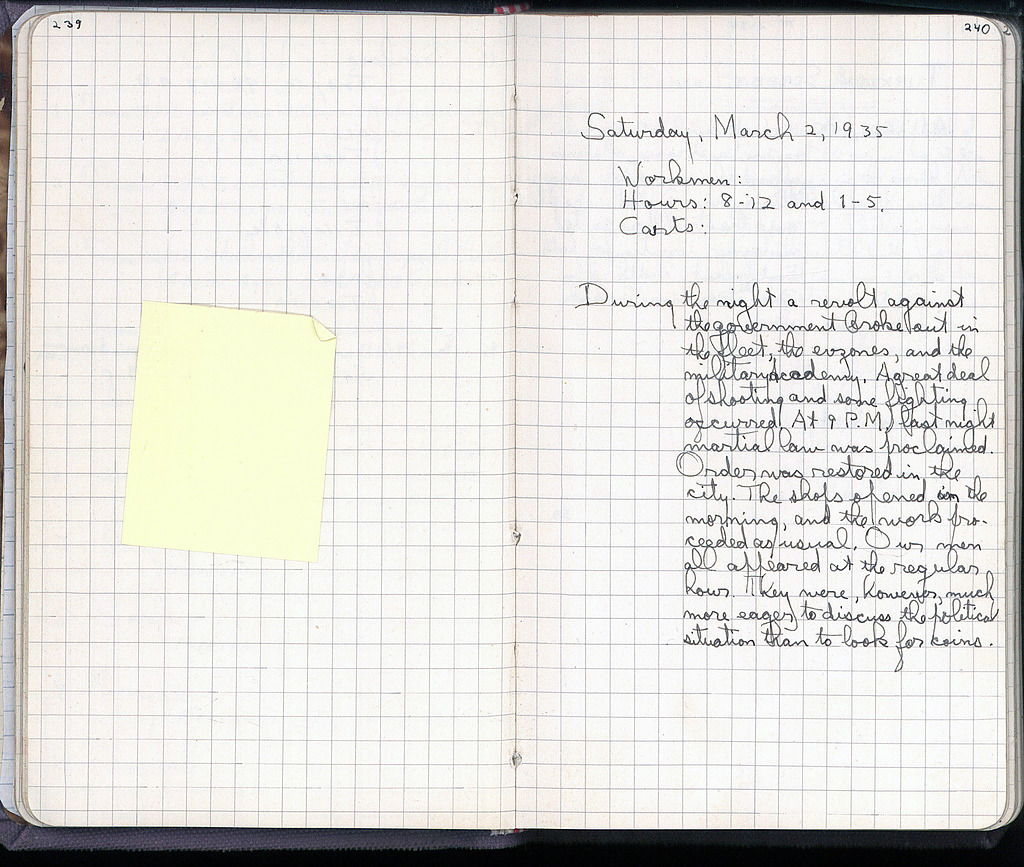 239
240
Saturday, March 2, 1935
Workmen:
Hours: 8-12 and 1-5.
Carts:
During the night a revolt against
the government broke out in
the fleet, the evzones, and the
military academy. A great deal
of shooting and some fighting
occurred. At 9 P.M. last night
martial law was proclaimed.
Order was restored in the
city. The shops opened in the
morning, and the work pro-
ceeded as usual. Our men
all appeared at the regular
hour. They were, however, much
more eager to discuss the political
situation than to look for coins.